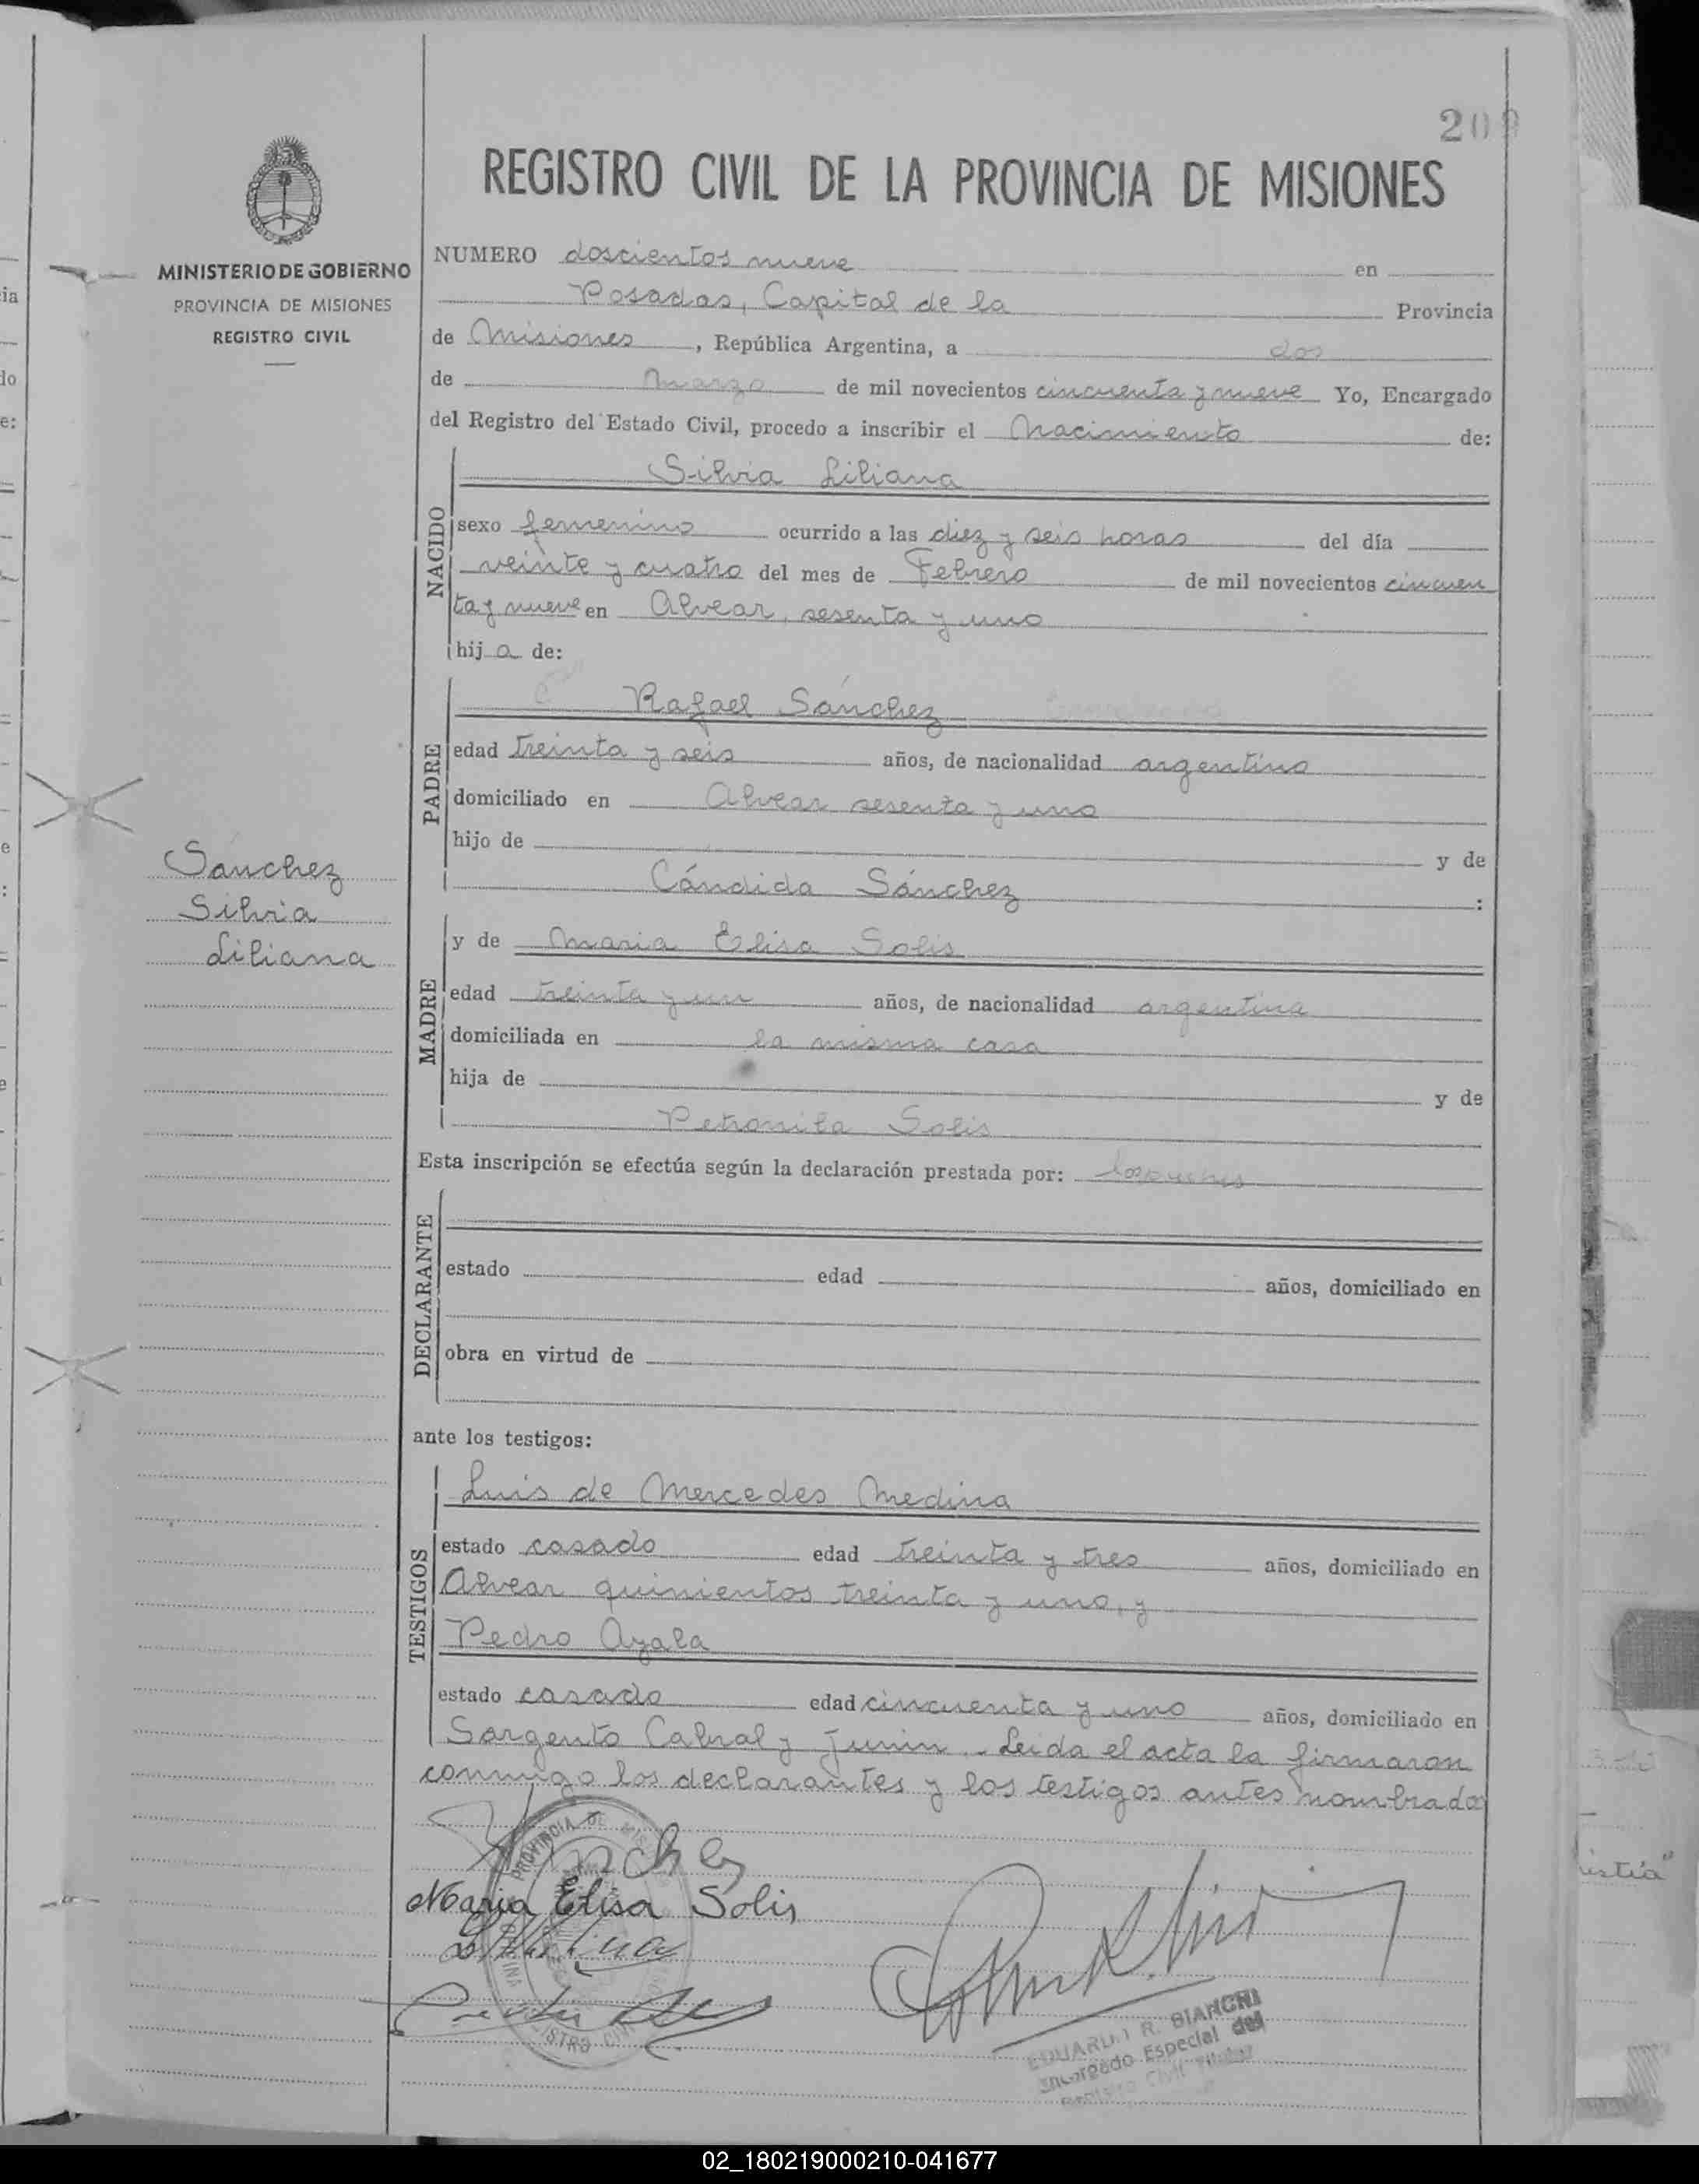 209
REGISTRO CIVIL DE LA PROVINCIA DE MISIONES
MINISTERIO DE GOBIERNO
PROVINCIA DE MISIONES
REGISTRO CIVIL
NUMERO doscientos nueve en
Posadas, Capital de la Provincia
de Misiones, República Argentina, a dos
de Marzo de mil novecientos cincuenta y nueve Yo, Encargado
del Registro del Estado Civil, procedo a inscribir el Nacimiento de:
NACIDO
Silvia Liliana
sexo femenino ocurrido a las diez y seis horas del día
veinte y cuatro del mes de Febrero de mil novecientos cincuen
ta y nueve en Alvear, sesenta y uno
hija de:
PADRE
Rafael Sánchez
edad treinta y seis años, de nacionalidad argentino
domiciliado en Alvear sesenta y uno
hijo de y de
Cándida Sánchez :
Sánchez
Silvia
Liliana
MADRE
y de Maria Elisa Solis
edad treinta y un años, de nacionalidad argentina
domiciliada en la misma casa
hija de y de
Petronila Solis
Esta inscripción se efectúa según la declaración prestada por:
DECLARANTE
estado edad años, domiciliado en
obra en virtud de
ante los testigos:
TESTIGOS
Luis de Mercedes Medina
estado casado edad treinta y tres años, domiciliado en
Alvear quinientos treinta y uno, y
Pedro Ayala
estado casado edad cincuenta y uno años, domiciliado en
Sargento Cabral y Junin.- Leida el acta la firmaron
conmigo los declarantes y los testigos antes nombrados
Maria Elisa Solis
PROVINCIA DE MIS
EDUARDO R. BIANCHI
Encargado Especial del
Registro Civil Titular
02_180219000210-041677